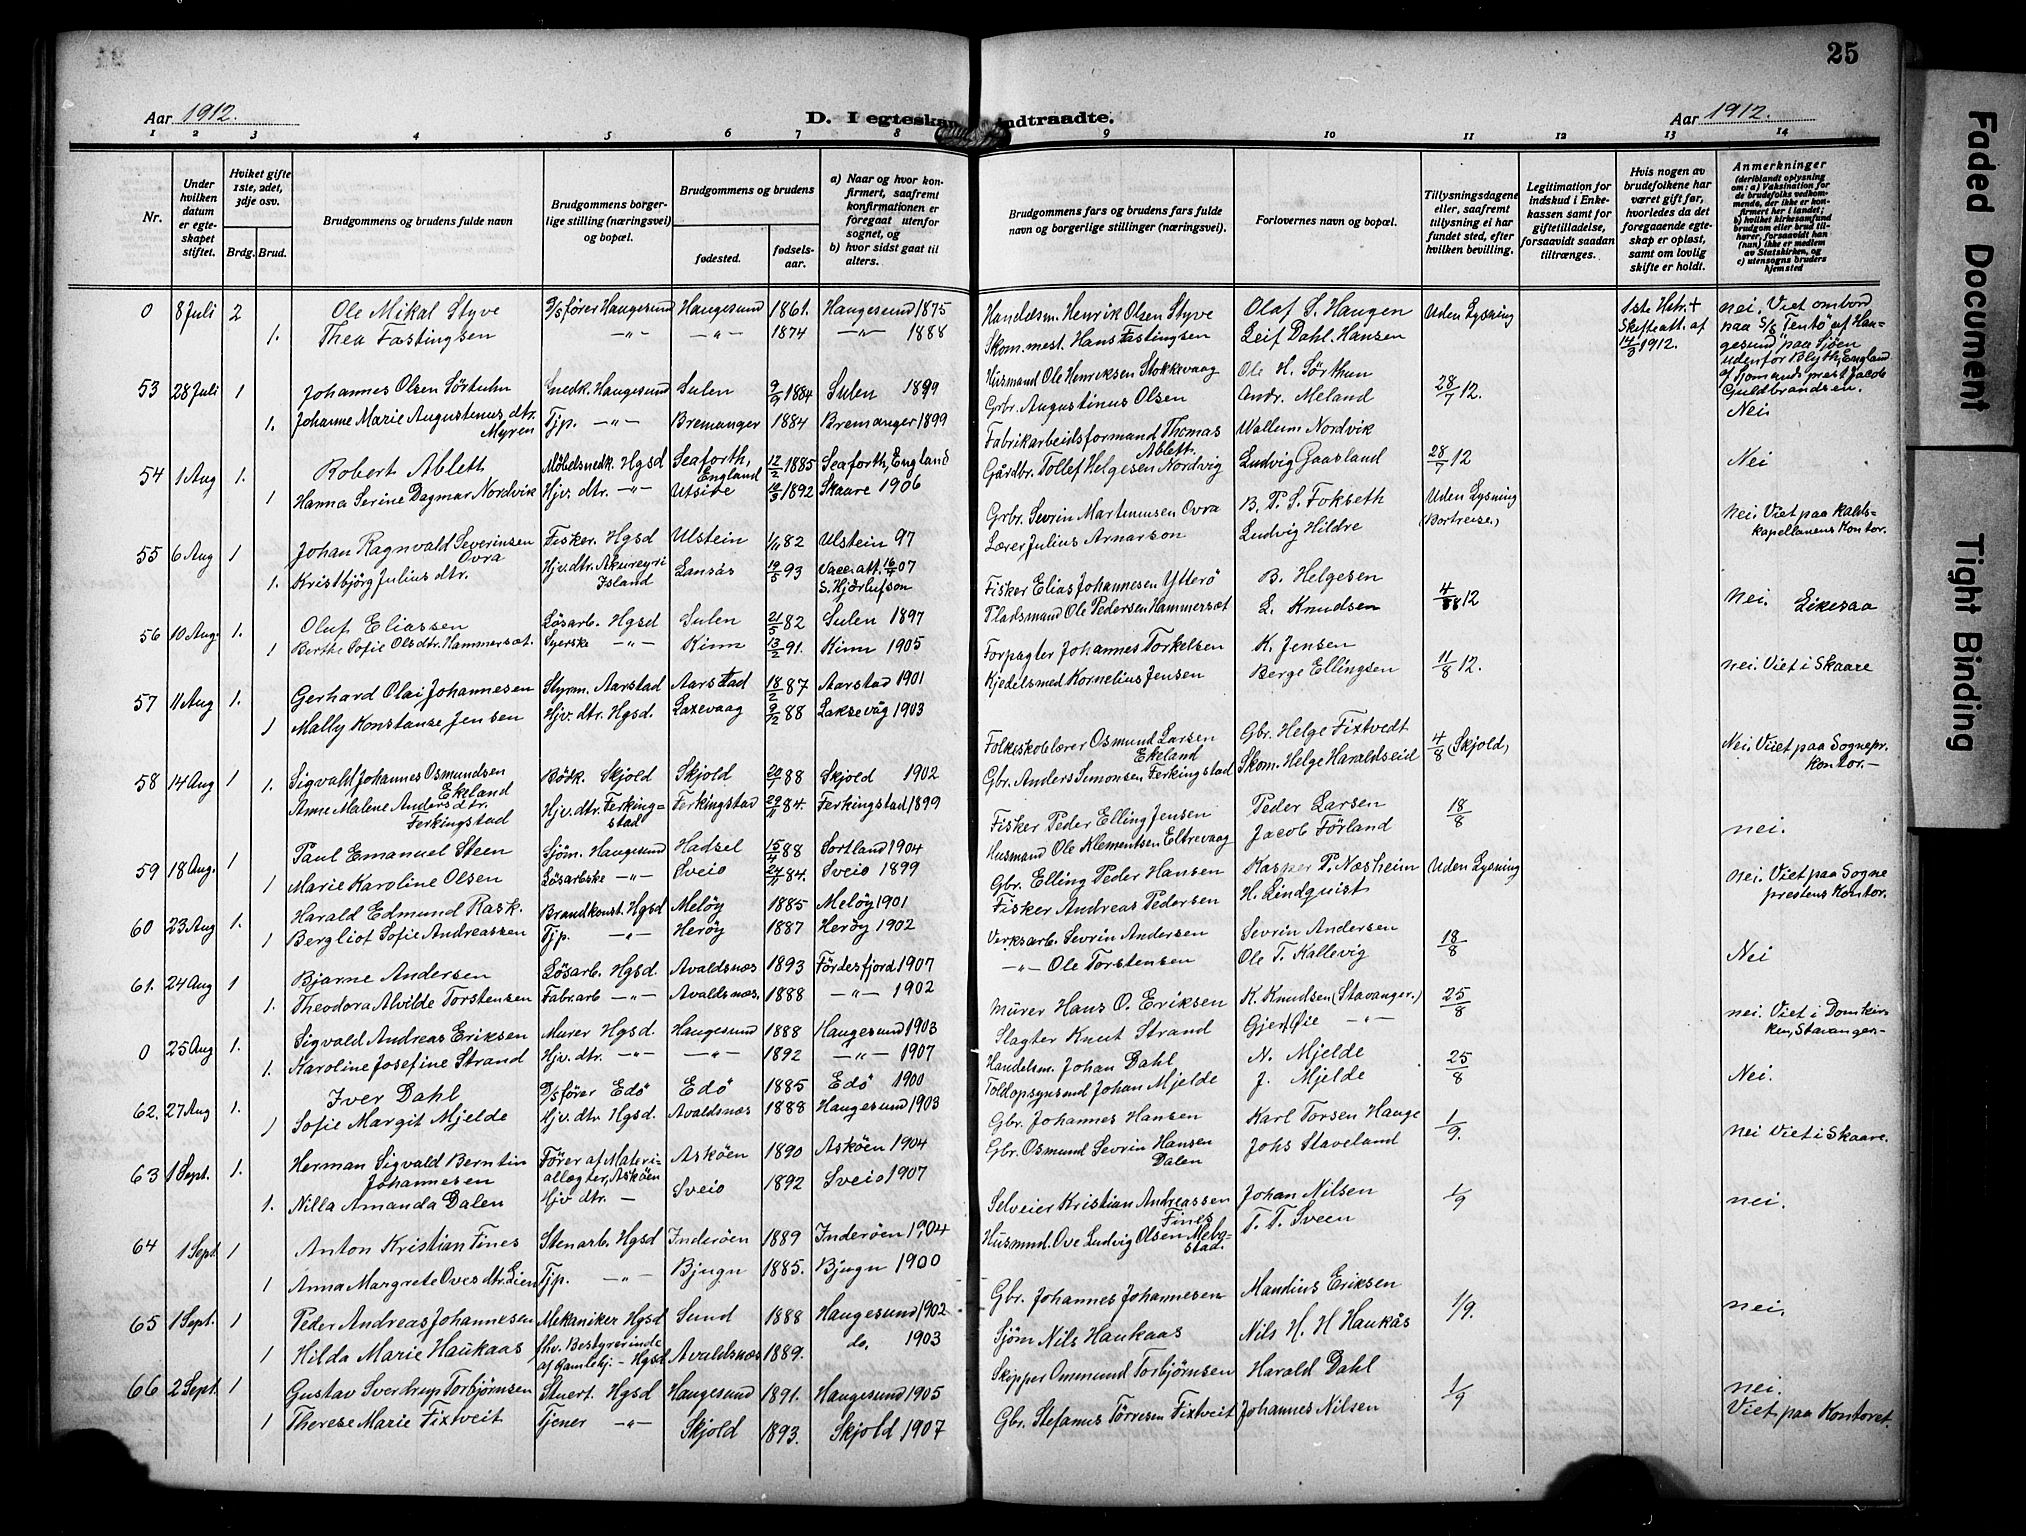 25
Aar 1912.
D. I egteskab indtraadte.
Aar 1912.
1 2 3 4 5 6 7 8 9 10 11 12 13 14
Nr.
Under hvilken datum er egteskapet stiftet.
Hvilket gifte 1ste, 2det, 3dje osv.
Brdg. Brud.
Brudgommens og brudens fulde navn
Brudgommens borgerlige stilling (næringsvei) og bopæl.
Brudgommens og brudens
fødested.
fødselsaar.
a) Naar og hvor konfirmert, saafremt konfirmationen er foregaat utenfor sognet, og
b) hvor sidst gaat til alters.
Brudgommens fars og brudens fars fulde navn og borgerlige stillinger (næringsvei).
Forlovernes navn og bopæl.
Tillysningsdagene eller, saafremt tilysning ei har fundet sted, efter hvilken bevilling.
Legitimation for indskud i Enkekassen samt for giftetilladelse, forsaavidt saadan tiltrænges.
Hvis nogen av brudefolkene har været gift før, hvorledes da det foregaaende egteskap er opløst, samt om lovlig skifte er holdt.
Anmerkninger
(deriblandt oplysning om: a) Vaksination for de brudefolks vedkommende, der ikke er konfirmert her i landet; b) hvilket kirkesamfund brudgom eller brud tilhører, forsaavidt han (hun) ikke er medlem av Statskirken, og c) utensogns bruders hjemsted
0 8 Juli 2 Ole Mikal Styve D/S fører Haugesund Haugesund 1861. Haugesund 1875 Handelsm. Henrik Olsen Styve Olaf S. Haugen Uden Lysning 1ste Hstr. + Skifteatt. af 14/3 1912. nei. Viet ombord
1. Thea Fastingsen —"— —"— 1874 —"— 1888 Skom.mest. Hans Fastingsen Leif Dahl. Hansen paa S/S "Tento" af Haugesund paa Sjøen udenfor Blyth, England af Sjomandsprest Jacob Guldbrandsen.
53 28 Juli 1 Johannes Olsen Sørtuhn Snedk. Haugesund Sulen 9/9 1884 Sulen 1899 Husmand Ole Henriksen Stokkevaag Ole H. Sørthun 28/7 12. Nei
1. Johanne Marie Augustenus dtr. Myren Tjp. —"— Bremanger 1884 Bremanger 1899 Grbr. Augustinus Olsen Andr. Meland
54 1 Aug 1. Robert Ablett Møbelsnedk. Hgsd Seaforth, England 12/2 1885 Seaforth, England Fabrikarbeidsformand Thomas Ablett. Wallum Nordvik 28/7 12 Nei
1 Hanna Serine Dagmar Nordvik Hjv. dtr. —"— Utsire 1892 Skaare 1906 Gårdbr. Tollef Helgesen Nordvig Ludvig Gaasland
55 6 Aug 1 Johan Ragnvald Severinsen Ovra Fisker. Hgsd Ulstein 82 Ulstein 97 Grbr. Sevrin Martinusen Ovra B. T. S. Fokseth Uden Lysning (Bortreise.) nei. Viet paa Kaldskapellanens Kontor.
1. Kristbjörg Julius dtr. Hjv. dtr. Akureyri Island 19/5 93 Vacc. att. 16/7 07 Lærer Julius Arnarson Ludvig Hildre
56 10 Aug. 1. Oluf Eliassen Løsarb. Hgsd Sulen 21/5 82 Sulen 1897 Fisker Elias Johannesen Ytterö B. Helgesen 4/8 12 nei. Eikesaa
1 Berthe Sofie Olsdtr. Hammersæt. Syerske —"— Kinn 13/2 91. Kinn 1905 Pladsmand Ole Pedersen Hammersæt L. Knudsen
57 11 Aug 1. Gerhard Olai Johannesen Styrm. Aarstad Aarstad 18/2 87 Aarstad 1901 Forpagter Johannes Torkelsen K. Jensen 11/8 12. nei. Viet i Skaare
1 Mally Konstanse Jensen Hjv. dtr. Hgsd. Laxevaag 9/12 88 Laksevåg 1903 Kjedelsmed Kornelius Jensen Berge Ellingsen
58 14 Aug 1 Sigvald Johannes Osmundsen Ekeland Bødk. Skjold Skjold 88 Skjold 1902 Folkeskolelærer Osmund Larsen Ekeland Gbr. Helge Fixtvedt 4/8 (Skjold) Nei. Viet paa Sognepr. kontor.—
1. Anne Malene Anders dtr. Ferkingstad Hjv. dtr. Ferkingstad Ferkingstad 29/11 84. Ferkingstad 1899 Gbr. Anders Simonsen Ferkingstad Skom. Helge Haraldseid
59 18 Aug. 1 Paul Emanuel Steen Sjøm. Haugesund Hadsel 15/4 88 Sortland 1904 Fisker Peder Elling Jensen Peder Larsen 18/8 nei.
1 Marie Karoline Olsen Løsarbske —"— Sveio 84. Sveio 1899 Husmand Ole Klementsen Eltrevaag Jacob Förland
60 23 Aug 1. Harald Edmund Rask. Brandkonst. Hgsd Meløy 1885 Meløy 1901 Gbr. Elling Peder Hansen Kasper P. Næsheim Uden Lysning nei. Viet paa Sogneprestens Kontor.
1 Bergliot Sofie Andreassen Tjp. —"— Herøy 1887 Herøy 1902 Fisker Andreas Pedersen H. Lindquist
61. 24 Aug 1 Bjarne Andersen Løsarb. Hgsd. Avaldsnæs 1893 Førdesfjord 1907 Verksarb. Sevrin Andersen Sevrin Andersen 18/8 Nei
1. Theodora Alvilde Torstensen Fabr.arb —"— Avaldsnæs. 1888 —"— 1902 —"— Ole Torstensen Ole T. Kallevig
0 25 Aug 1. Sigvald Andreas Eriksen Murer Hgsd. Haugesund 1888 Haugesund 1903 Mürer Hans O. Eriksen K. Knudsen (Stavanger.) 25/8 nei. Viet i Domkirken, Stavanger.—
1. Karoline Josefine Strand Hjv. dtr. —"— —"— 1892 —"— 1907 Slagter Knut Strand Gjert Øie —"—
62. 27 Aug 1. Iver Dahl D/S fører Edö Edö 1885 Edö 1900 Handelsm. Johan Dahl N. Mjelde 25/8 Nei.
1 Sofie Margit Mjelde Hjv. dtr. Hgsd. Avaldsnæs 1888 Haugesund 1903 Toldopsynsmd Johan Mjelde J. Mjelde
63 1 Sept. 1. Herman Sigvald Berntin Johannesen Fører af Materiallægter, Askøen Askøen 1890 Askøen 1904 Gbr. Johannes Hansen Karl Torsen Hauge 1/9. nei Viet i Skaare.
1. Nilla Amanda Dalen Hjv dtr. — Sveio 1892 Sveio 1907 Gbr. Osmund Sevrin Hansen Dalen Johs Staveland
64 1 Sept 1 Anton Kristian Fines Stenarb. Hgsd Inderøen 1889 Inderøen 1904 Selveier Kristian Andreassen Fines Johan Nilsen 1/9 nei.
1 Anna Margrete Oves dtr. Lien Tjp. —"— Bjugn 1885. Bjugn 1900 Husmand. Ove Ludvig Olsen Mebostad. T. T. Sveen
65 1 Sept. 1 Peder Andreas Johannesen Mekaniker Hgsd Sund 1888 Haugesund 1902 Gbr. Johannes Johannesen Mandius Eriksen 1/9. nei.
1 Hilda Marie Haukaas fhv. Bestyrerinde af Gamlehj. – Hgsd Avaldsnæs 1889. do. 1903 Sjöm Nils Haukaas Nils H. H Haukås
66 2 Sept. 1 Gustav Sverdrup Torbjørnsen Stuert. Hgsd Haugesund 1891. Haugesund 1905 Skipper Ommund Torbjørnsen Harald Dahl 1/9 nei. Viet paa Kontoret.
1 Therese Marie Fixtveit Tjener —"— Skjold 1893. Skjold 1907 Gbr. Stefanus Tørresen Fixtveit Johannes Nilsen
Faded Document
Tight Binding